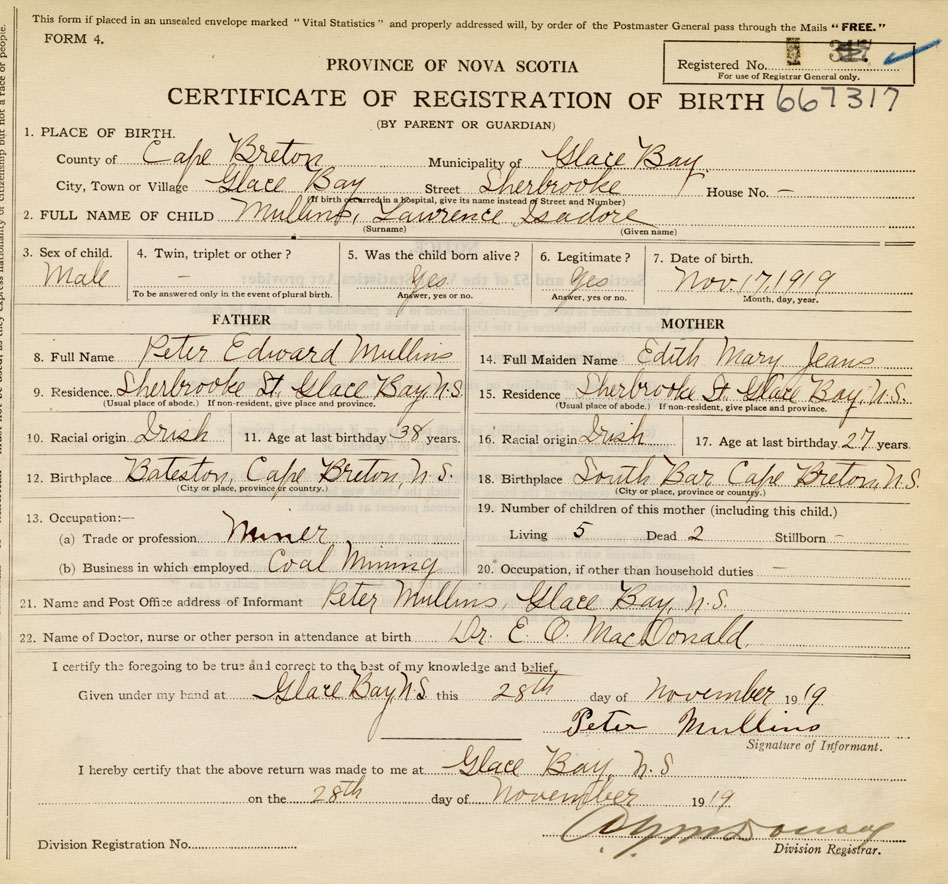 This form if placed in an unsealed envelope marked "Vital Statistics" and properly addressed will, by order of the Postmaster General pass through the Mails "FREE."
FORM 4.
Registered No.
For use of Registrar General only.
PROVINCE OF NOVA SCOTIA
CERTIFICATE OF REGISTRATION OF BIRTH 667317
(BY PARENT OR GUARDIAN)
1. PLACE OF BIRTH.
County of Cape Breton Municipality of Glace Bay
City, Town or Village Glace Bay Street Sherbrooke House No. –
(If birth occurred in a hospital, give its name instead of Street and Number)
2. FULL NAME OF CHILD Mullins, Lawrence Isadore
(Surname) (Given name)
3. Sex of child. 4. Twin, triplet or other? 5. Was the child born alive? 6. Legitimate? 7. Date of birth.
Male – Yes Yes Nov. 17, 1919
To be answered only in the event of plural birth. Answer, yes or no. Answer, yes or no. Month, day, year.
FATHER MOTHER
8. Full Name Peter Edward Mullins 14. Full Maiden Name Edith Mary Jeans
9. Residence. Sherbrooke St. Glace Bay, N.S. 15. Residence Sherbrooke St. Glace Bay, N.S.
(Usual place of abode.) If non-resident, give place and province. (Usual place of abode.) If non-resident, give place and province.
10. Racial origin Irish 11. Age at last birthday 38 years. 16. Racial origin Irish 17. Age at last birthday 27 years.
12. Birthplace Bateston, Cape Breton, N.S. 18. Birthplace South Bar Cape Breton, N.S.
(City or place, province or country.) (City or place, province or country.)
13. Occupation:— 19. Number of children of this mother (including this child.)
(a) Trade or profession Miner Living 5 Dead 2 Stillborn –
(b) Business in which employed Coal Mining 20. Occupation, if other than household duties —
21. Name and Post Office address of Informant Peter Mullins, Glace Bay, N.S.
22. Name of Doctor, nurse or other person in attendance at birth Dr. E. O. MacDonald.
I certify the foregoing to be true and correct to the best of my knowledge and belief.
Given under my hand at Glace Bay, N.S. this 28th day of November 1919.
Peter Mullins
Signature of Informant.
I hereby certify that the above return was made to me at Glace Bay, N.S
on the 28th day of November 1919.
Division Registration No.
Division Registrar.